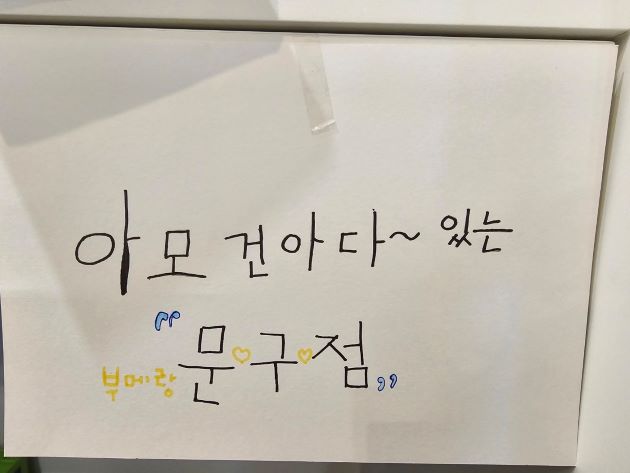 아모건아다~ 있는
“문♡구♡점”
부메랑